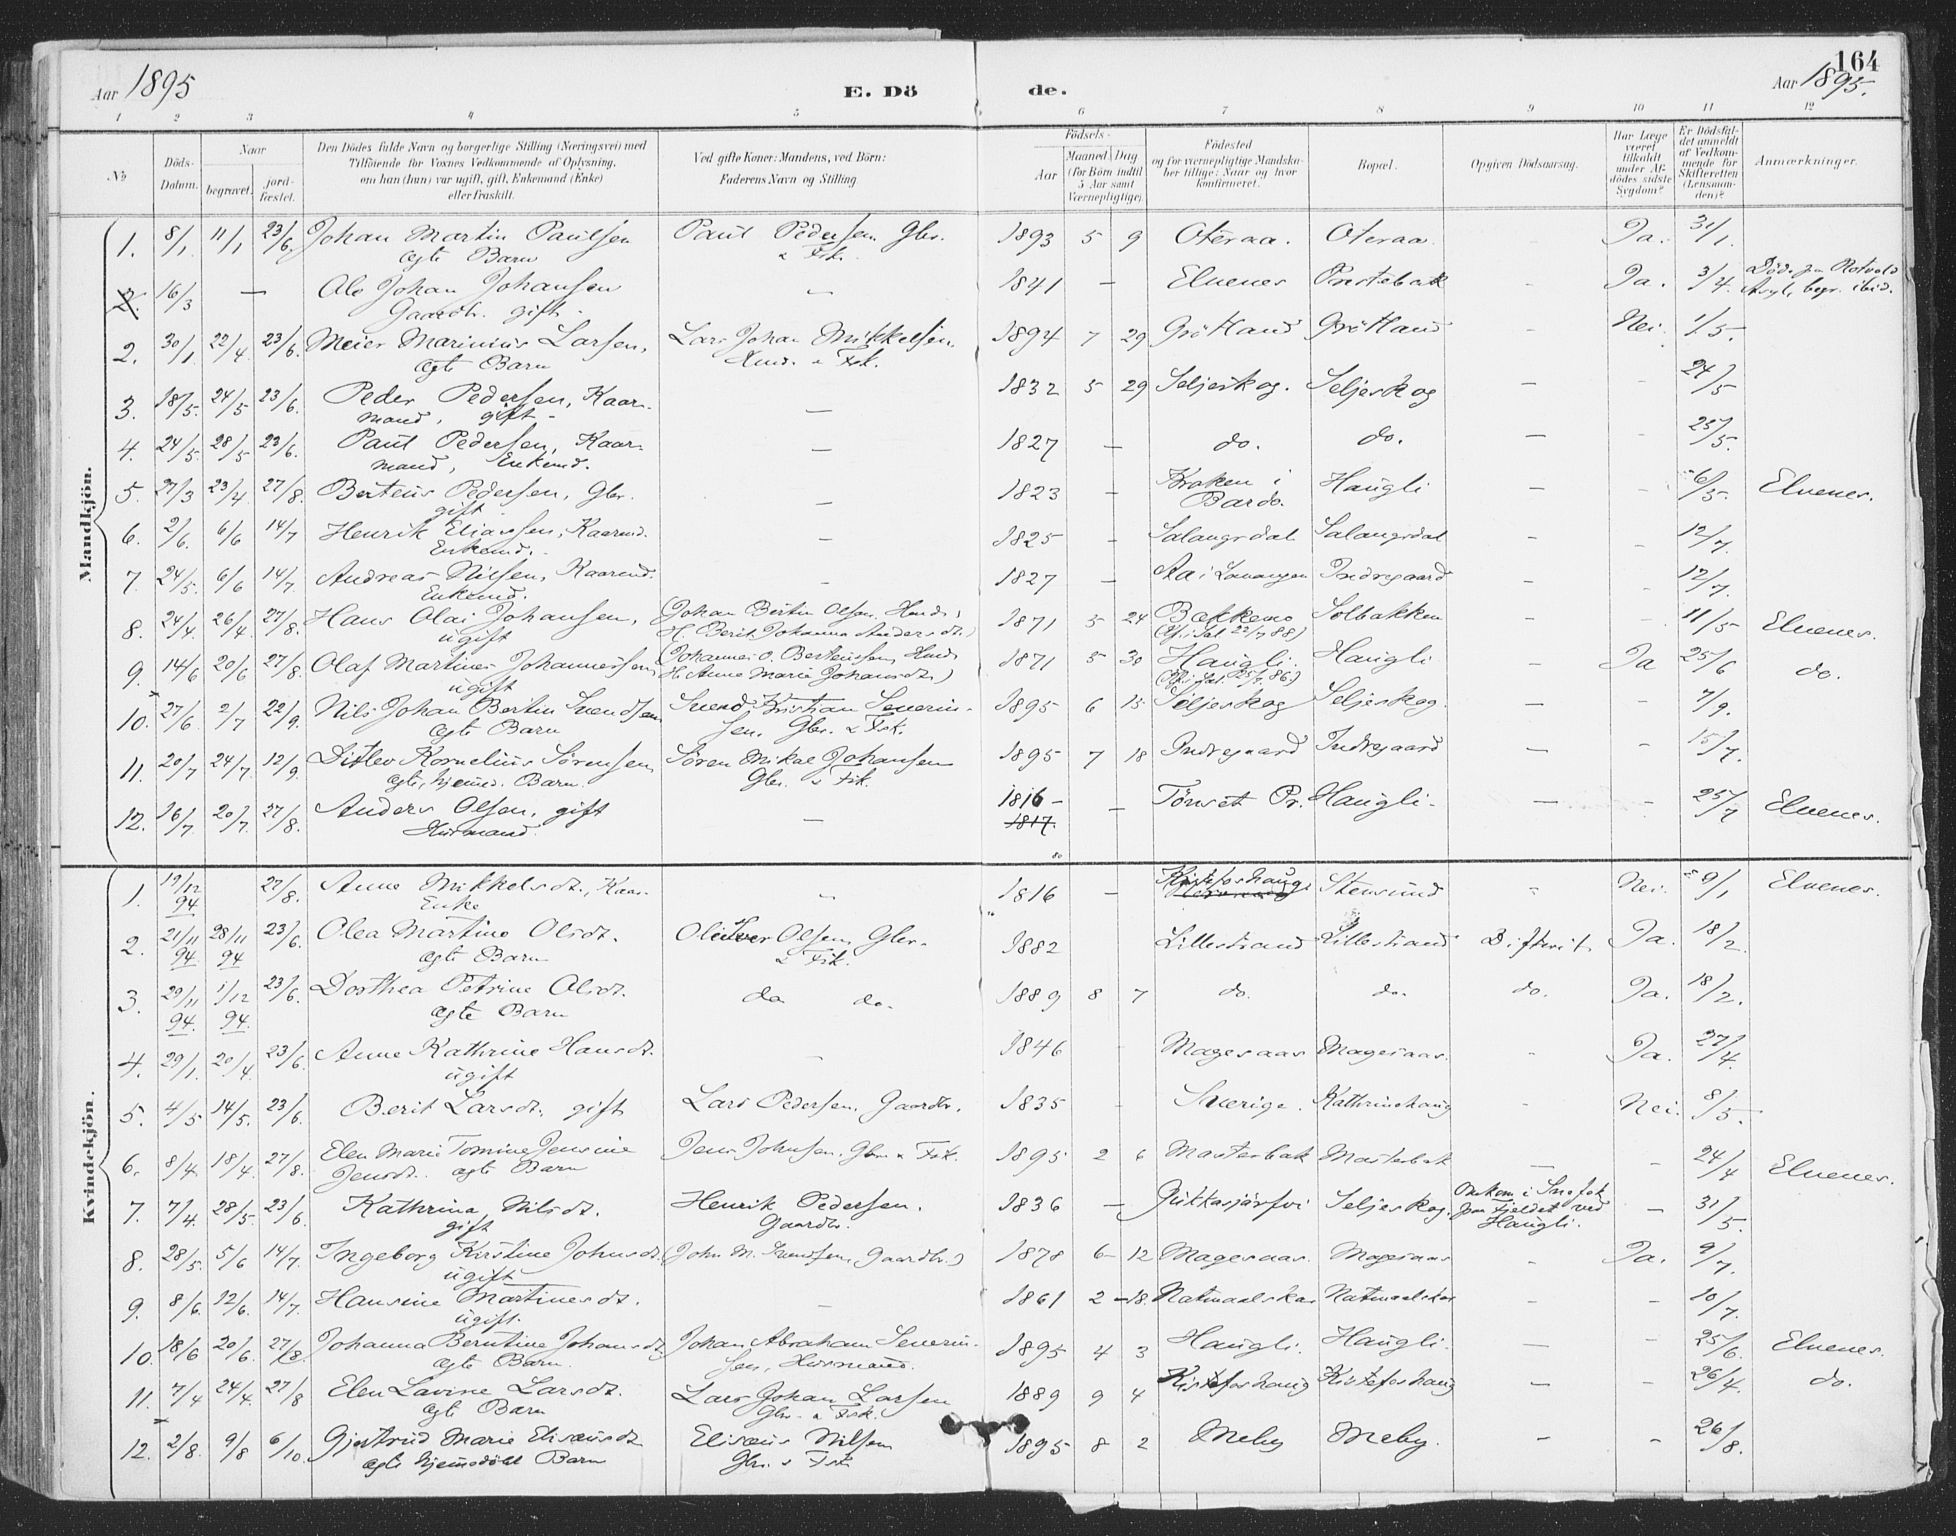 164
Aar 1895
E. Dö de.
Aar 1895.
1 2 3 4 5 6 7 8 9 10 11 12
No
Döds-Datum.
Naar begravet. jordfæstet.
Den Dödes fulde Navn og borgerlige Stilling (Næringsvei) med Tilföiende for Voxnes Vedkommende af Oplysning, om han (hun) var ugift, gift, Enkemand (Enke) eller fraskilt.
Ved gifte Koner: Mandens, ved Börn: Faderens Navn og Stilling
Födsels- Aar Maaned Dag (for Börn indtil 5 Aar samt Værnepligtige)
Födested og for værnepligtige Mandskaber tillige: Naar og hvor konfirmeret.
Bopæl.
Opgiven Dödsaarsag.
Har Læge været tilkaldt under Afdödes sidste Sygdom?
Er Dödsfaldet anmeldt af Vedkommende for Skifteretten (Lensmanden)?
Anmærkninger.
Mandkjön.
1. 8/1 11/1 23/6 Johan Martin Paulsen Paul Pedersen Gbr. 1893 5 9 Oteraa. Oteraa. Ja. 31/1.
ægte Barn & Fsk.
2. 16/3 — Ole Johan Johansen — 1841 — Elvenes Prestebak - Ja. 3/4. Döde paa Rotvold
Gaardbr. gift - Asyl, begr. ibid.
2. 30/1. 22/4. 23/6. Meier Marinius Larsen, Lars Johan Mikkelsen, 1894 7 29 Gröttland Gröttland - Nei. 1/5.
ægte Barn Hmd. & Fsk.
3. 18/5. 24/5 23/6. Peder Pedersen, Kaar- — 1832 5 29 Seljeskog. Seljeskog — - 24/5
mand, gift -
4. 24/5. 28/5 23/6. Paul Pedersen, Kaar- — 1827 — do. do. — - 25/5.
mand, Enkemd.
5. 27/3 23/4. 27/8. Berteus Pedersen, Gbr. — 1823 - Kroken i Haugli 6/5. Elvenes.
gift - Bardo.
6. 2/6. 6/6 14/7 Henrik Eliassen, Kaarmd. — 1825 - Salangsdal Salangsdal - - 12/7.
Enkemd. -
7. 24/5. 6/6 14/7. Andreas Nilsen, Kaarmd. - 1827 — Aa i Lavangen Indregaard - - 12/7.
Enkemd.
8. 24/4. 26/4. 27/8. Hans Olai Johansen, (Johan Bertin Olsen, Hmd., 1871 5 24 Bakkemo Solbakken - - 11/5 Elvenes.
ugift H. Berit Johanna Andersdt.) 22/7 88)
9. 14/6 20/6 27/8. Olaf Martines Johannessen (Johannes O. Berteussen, Hmd. 1871 5 30 Haugli. Haugli - Ja 25/6 do.
ugift H. Anne Marie Johansdt.)
10. 27/6. 2/7 22/9. Nils Johan Bertin Svendsen Svend Kristian Severin- 1895 6 15 Seljeskog Seljeskog. — - 7/9.
ægte Barn sen, Gbr. & Fsk.
11. 20/7 24/7. 12/9. Ditlev Kornelius Sörensen, Sören Mikal Johansen 1895 7 18 Indregaard Indregaard — - 15/7.
ægte, hjemmed. Barn. Gbr. & Fsk.
12. 16/7 20/7. 27/8. Anders Olsen, gift — 1816 - 1817. — Tönset Pr. Haugli. — - 25/7 Elvenes.
Husmand.
Kvindekjön.
1. 19/12 94 27/8. Anne Mikkelsdt., Kaar- - 1816 — Kistefoshaug Stensund - Nei. 9/1 Elvenes.
Enke
2. 21/11 94. 28/11 94 23/6. Olea Martine Olsdt. Ole Iver Olsen Gbr. 1882 Lillestrand Lillestrand Difterit Ja. 18/2.
ægte Barn & Fsk.
3. 29/11 94. 1/12 94. 23/6. Dorthea Petrine Olsdt. do do. 1889 8 7 do. do. do. Ja. 18/2.
ægte Barn
4. 29/1. 20/4. 23/6. Anne Kathrine Hansdt. - 1846 - Magesaas Magesaas. - Ja. 27/4.
ugift
5. 4/5 14/5. 23/6. Berit Larsdt. gift Lars Pedersen, Gaardbr. 1835 - Sverige. Kathrinehaug - Nei. 8/5.
6. 8/4. 18/4. 27/8. Elen Marie Tomine Jensine Jens Johnsen, Gbr. & Fsk. 1895 2 6 Masterbak Masterbak — - 24/4 Elvenes.
Jensdt. ægte Barn
7. 7/4. 28/5. 23/6. Kathrina Nilsdt. Henrik Pedersen. 1836 — Jukkasjärfvi Seljeskog. Omkom i Snefok — 31/5.
gift Gaardbr. paa Fjeldet ved Haugli.
8. 28/5. 5/6 14/7. Ingeborg Kirstine Johnsdt. (John M. Svendsen, Gaardbr.) 1878 6 12 Magesaas. Magesaas - Ja. 9/7.
ugift
9. 8/6. 12/6. 14/7. Hansine Martinesdt. - 1861 2 18. - - 10/7.
ugift.
10. 18/6 20/6. 27/8. Johanna Berntine Johansdt. Johan Abraham Severin- 1895 4 3 Haugli. Haugli. — - 25/6. Elvenes.
ægte Barn. sen, Husmand.
11. 7/4 24/4. 27/8 Elen Lavine Larsdt. Lars Johan Larsen 1889 9 4 Kistefoshaug Kistefoshaug — - 26/4. do.
ægte Barn Gbr. & Fsk.
12. 2/8. 9/8 6/10. Gjertrud Marie Elisæusdt. Elisæus Nilsen 1895 8 2 Meby Meby. - - 26/8.
ægte hjemmedöbt Barn Gbr. & Fsk